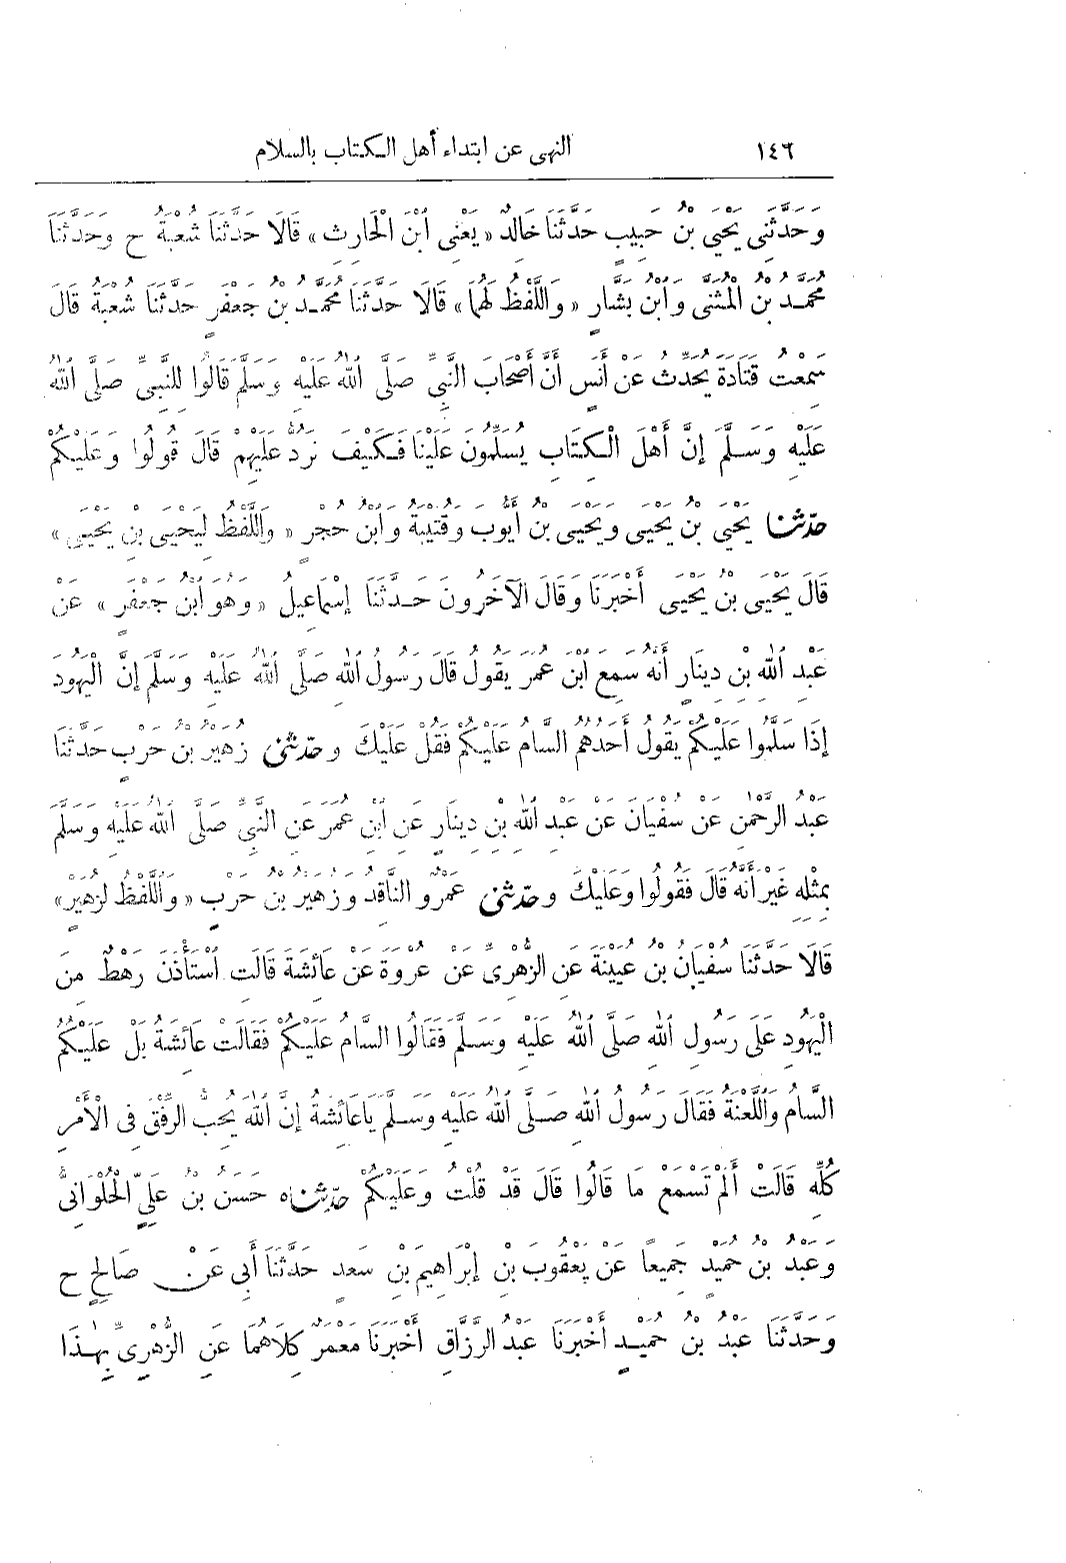 ١٤٦ النهى عن ابتداء أهل الكتاب بالسلام
وَحَدَّثَنِى يَحْيَى بْنُ حَبِيبٍ حَدَّثَنَا خَالِدٌ «يَعْنِى ٱبْنَ الْحَارِثِ» قَالَا حَدَّثَنَا شُعْبَةُ ح وَحَدَّثَنَا
مُحَمَّدُ بْنُ الْمُثَنَّى وَٱبْنُ بَشَّارٍ «وَاللَّفْظُ لَهُمَا» قَالَا حَدَّثَنَا مُحَمَّدُ بْنُ جَعْفَرٍ حَدَّثَنَا شُعْبَةُ قَالَ
سَمِعْتُ قَتَادَةَ يُحَدِّثُ عَنْ أَنَسٍ أَنَّ أَصْحَابَ النَّبِىِّ صَلَّى ٱللهُ عَلَيْهِ وَسَلَّمَ قَالُوا لِلنَّبِىِّ صَلَّى ٱللهُ
عَلَيْهِ وَسَلَّمَ إِنَّ أَهْلَ الْكِتَابِ يُسَلِّمُونَ عَلَيْنَا فَكَيْفَ نَرُدُّ عَلَيْهِمْ قَالَ قُولُوا وَعَلَيْكُمْ
حدّثنا يَحْيَى بْنُ يَحْيَى وَيَحْيَى بْنُ أَيُّوبَ وَقُتَيْبَةُ وَٱبْنُ حُجْرٍ «وَاللَّفْظُ لِيَحْيَى بْنِ يَحْيَى»
قَالَ يَحْيَى بْنُ يَحْيَى أَخْبَرَنَا وَقَالَ الْآخَرُونَ حَدَّثَنَا إِسْمَاعِيلُ «وَهُوَ ٱبْنُ جَعْفَرٍ» عَنْ
عَبْدِ ٱللهِ بْنِ دِينَارٍ أَنَّهُ سَمِعَ ٱبْنَ عُمَرَ يَقُولُ قَالَ رَسُولُ ٱللهِ صَلَّى ٱللهُ عَلَيْهِ وَسَلَّمَ إِنَّ الْيَهُودَ
إِذَا سَلَّمُوا عَلَيْكُمْ يَقُولُ أَحَدُهُمُ السَّامُ عَلَيْكُمْ فَقُلْ عَلَيْكَ وحدّثنى زُهَيْرُ بْنُ حَرْبٍ حَدَّثَنَا
عَبْدُ الرَّحْمٰنِ عَنْ سُفْيَانَ عَنْ عَبْدِ ٱللهِ بْنِ دِينَارٍ عَنِ ٱبْنِ عُمَرَ عَنِ النَّبِىِّ صَلَّى ٱللهُ عَلَيْهِ وَسَلَّمَ
بِمِثْلِهِ غَيْرَ أَنَّهُ قَالَ فَقُولُوا وَعَلَيْكَ وحدّثنى عَمْرٌو النَّاقِدُ وَزُهَيْرُ بْنُ حَرْبٍ «وَاللَّفْظُ لِزُهَيْرٍ»
قَالَا حَدَّثَنَا سُفْيَانُ بْنُ عُيَيْنَةَ عَنِ الزُّهْرِىِّ عَنْ عُرْوَةَ عَنْ عَائِشَةَ قَالَتِ ٱسْتَأْذَنَ رَهْطٌ مِنَ
الْيَهُودِ عَلَى رَسُولِ ٱللهِ صَلَّى ٱللهُ عَلَيْهِ وَسَلَّمَ فَقَالُوا السَّامُ عَلَيْكُمْ فَقَالَتْ عَائِشَةُ بَلْ عَلَيْكُمُ
السَّامُ وَاللَّعْنَةُ فَقَالَ رَسُولُ ٱللهِ صَلَّى ٱللهُ عَلَيْهِ وَسَلَّمَ يَاعَائِشَةُ إِنَّ ٱللهَ يُحِبُّ الرِّفْقَ فِى الْأَمْرِ
كُلِّهِ قَالَتْ أَلَمْ تَسْمَعْ مَا قَالُوا قَالَ قَدْ قُلْتُ وَعَلَيْكُمْ حدّثناه حَسَنُ بْنُ عَلِىٍّ الْحُلْوَانِىُّ
وَعَبْدُ بْنُ حُمَيْدٍ جَمِيعًا عَنْ يَعْقُوبَ بْنِ إِبْرَاهِيمَ بْنِ سَعْدٍ حَدَّثَنَا أَبِى عَنْ صَالِحٍ ح
وَحَدَّثَنَا عَبْدُ بْنُ حُمَيْدٍ أَخْبَرَنَا عَبْدُ الرَّزَّاقِ أَخْبَرَنَا مَعْمَرٌ كِلَاهُمَا عَنِ الزُّهْرِىِّ بِهٰذَا